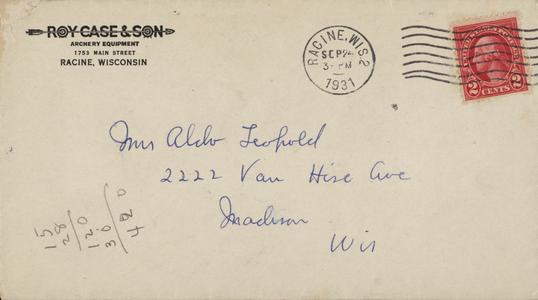 ROY CASE & SON
ARCHERY EQUIPMENT
1753 MAIN STREET
RACINE, WISCONSIN
RACINE, WIS 2
SEP 24
3- PM
1931
2 CENTS 2
Mrs Aldo Leopold
2222 Van Hise Ave
Madison
Wis
15
28
120
30
420